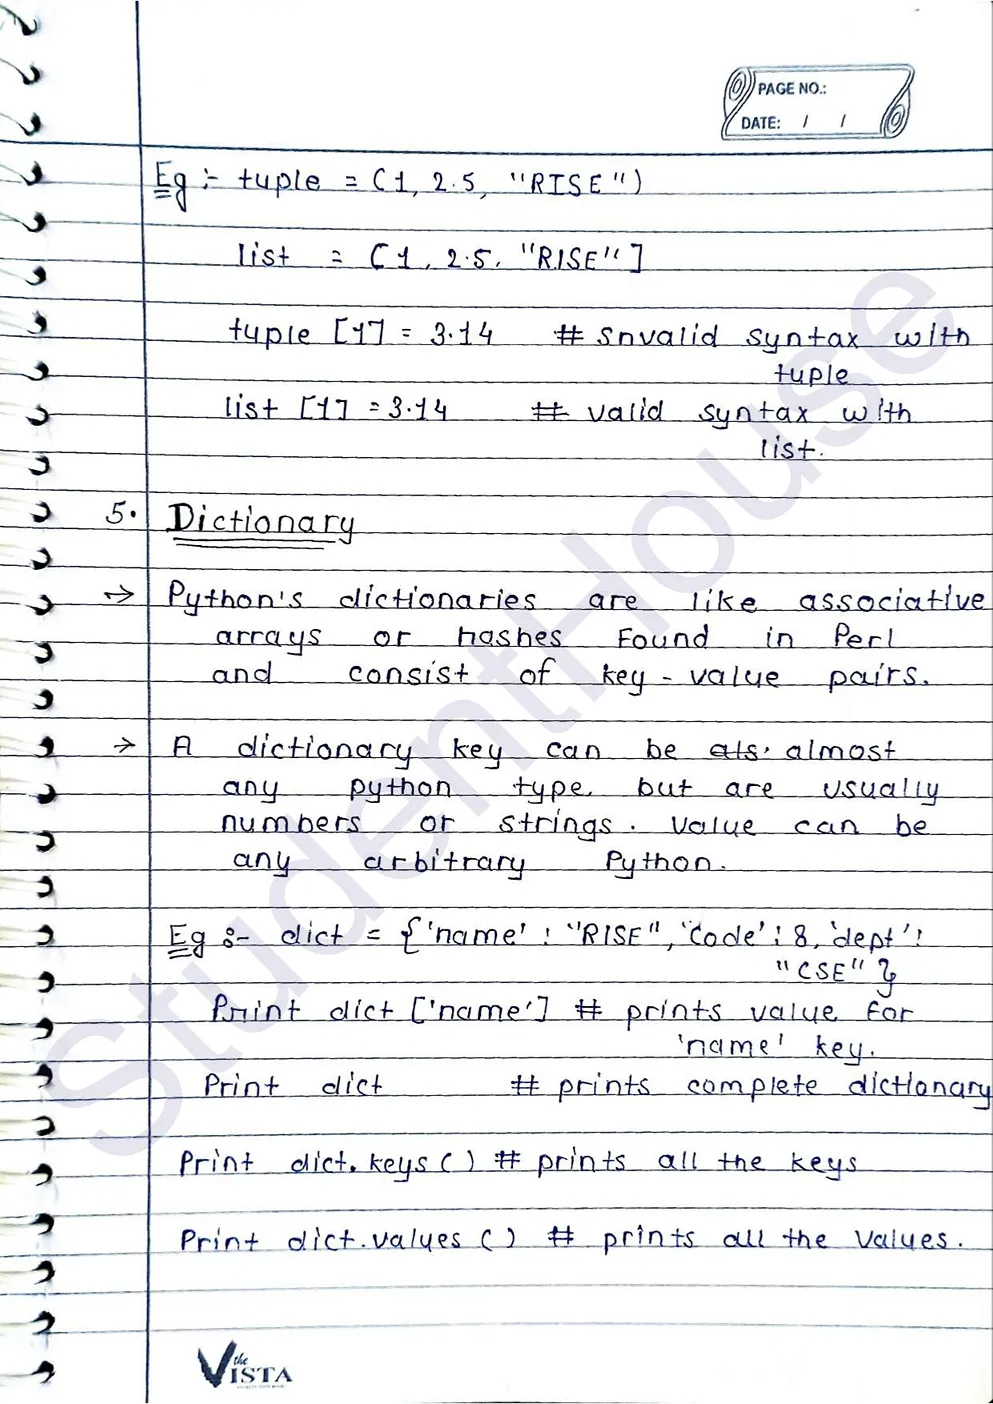 PAGE NO.:
DATE: / /
Eg :- tuple = (1, 2.5, "RISE")
list = [1, 2.5, "RISE"]
tuple [1] = 3.14 # Snvalid syntax with
tuple
list [1] = 3.14 # valid syntax with
list.
5. Dictionary
→ Python's dictionaries are like associative
arrays or hashes Found in Perl
and consist of key - value pairs.
→ A dictionary key can be als. almost
any python type, but are usually
numbers or strings. Value can be
any arbitrary Python.
Eg :- dict = {'name' : "RISE", 'Code' : 8, 'dept' :
"CSE" }
Print dict ['name'] # prints value For
'name' key.
Print dict # prints complete dictionary
Print dict.keys ( ) # prints all the keys
Print dict.values ( ) # prints all the Values.
StudentHouse
the VISTA